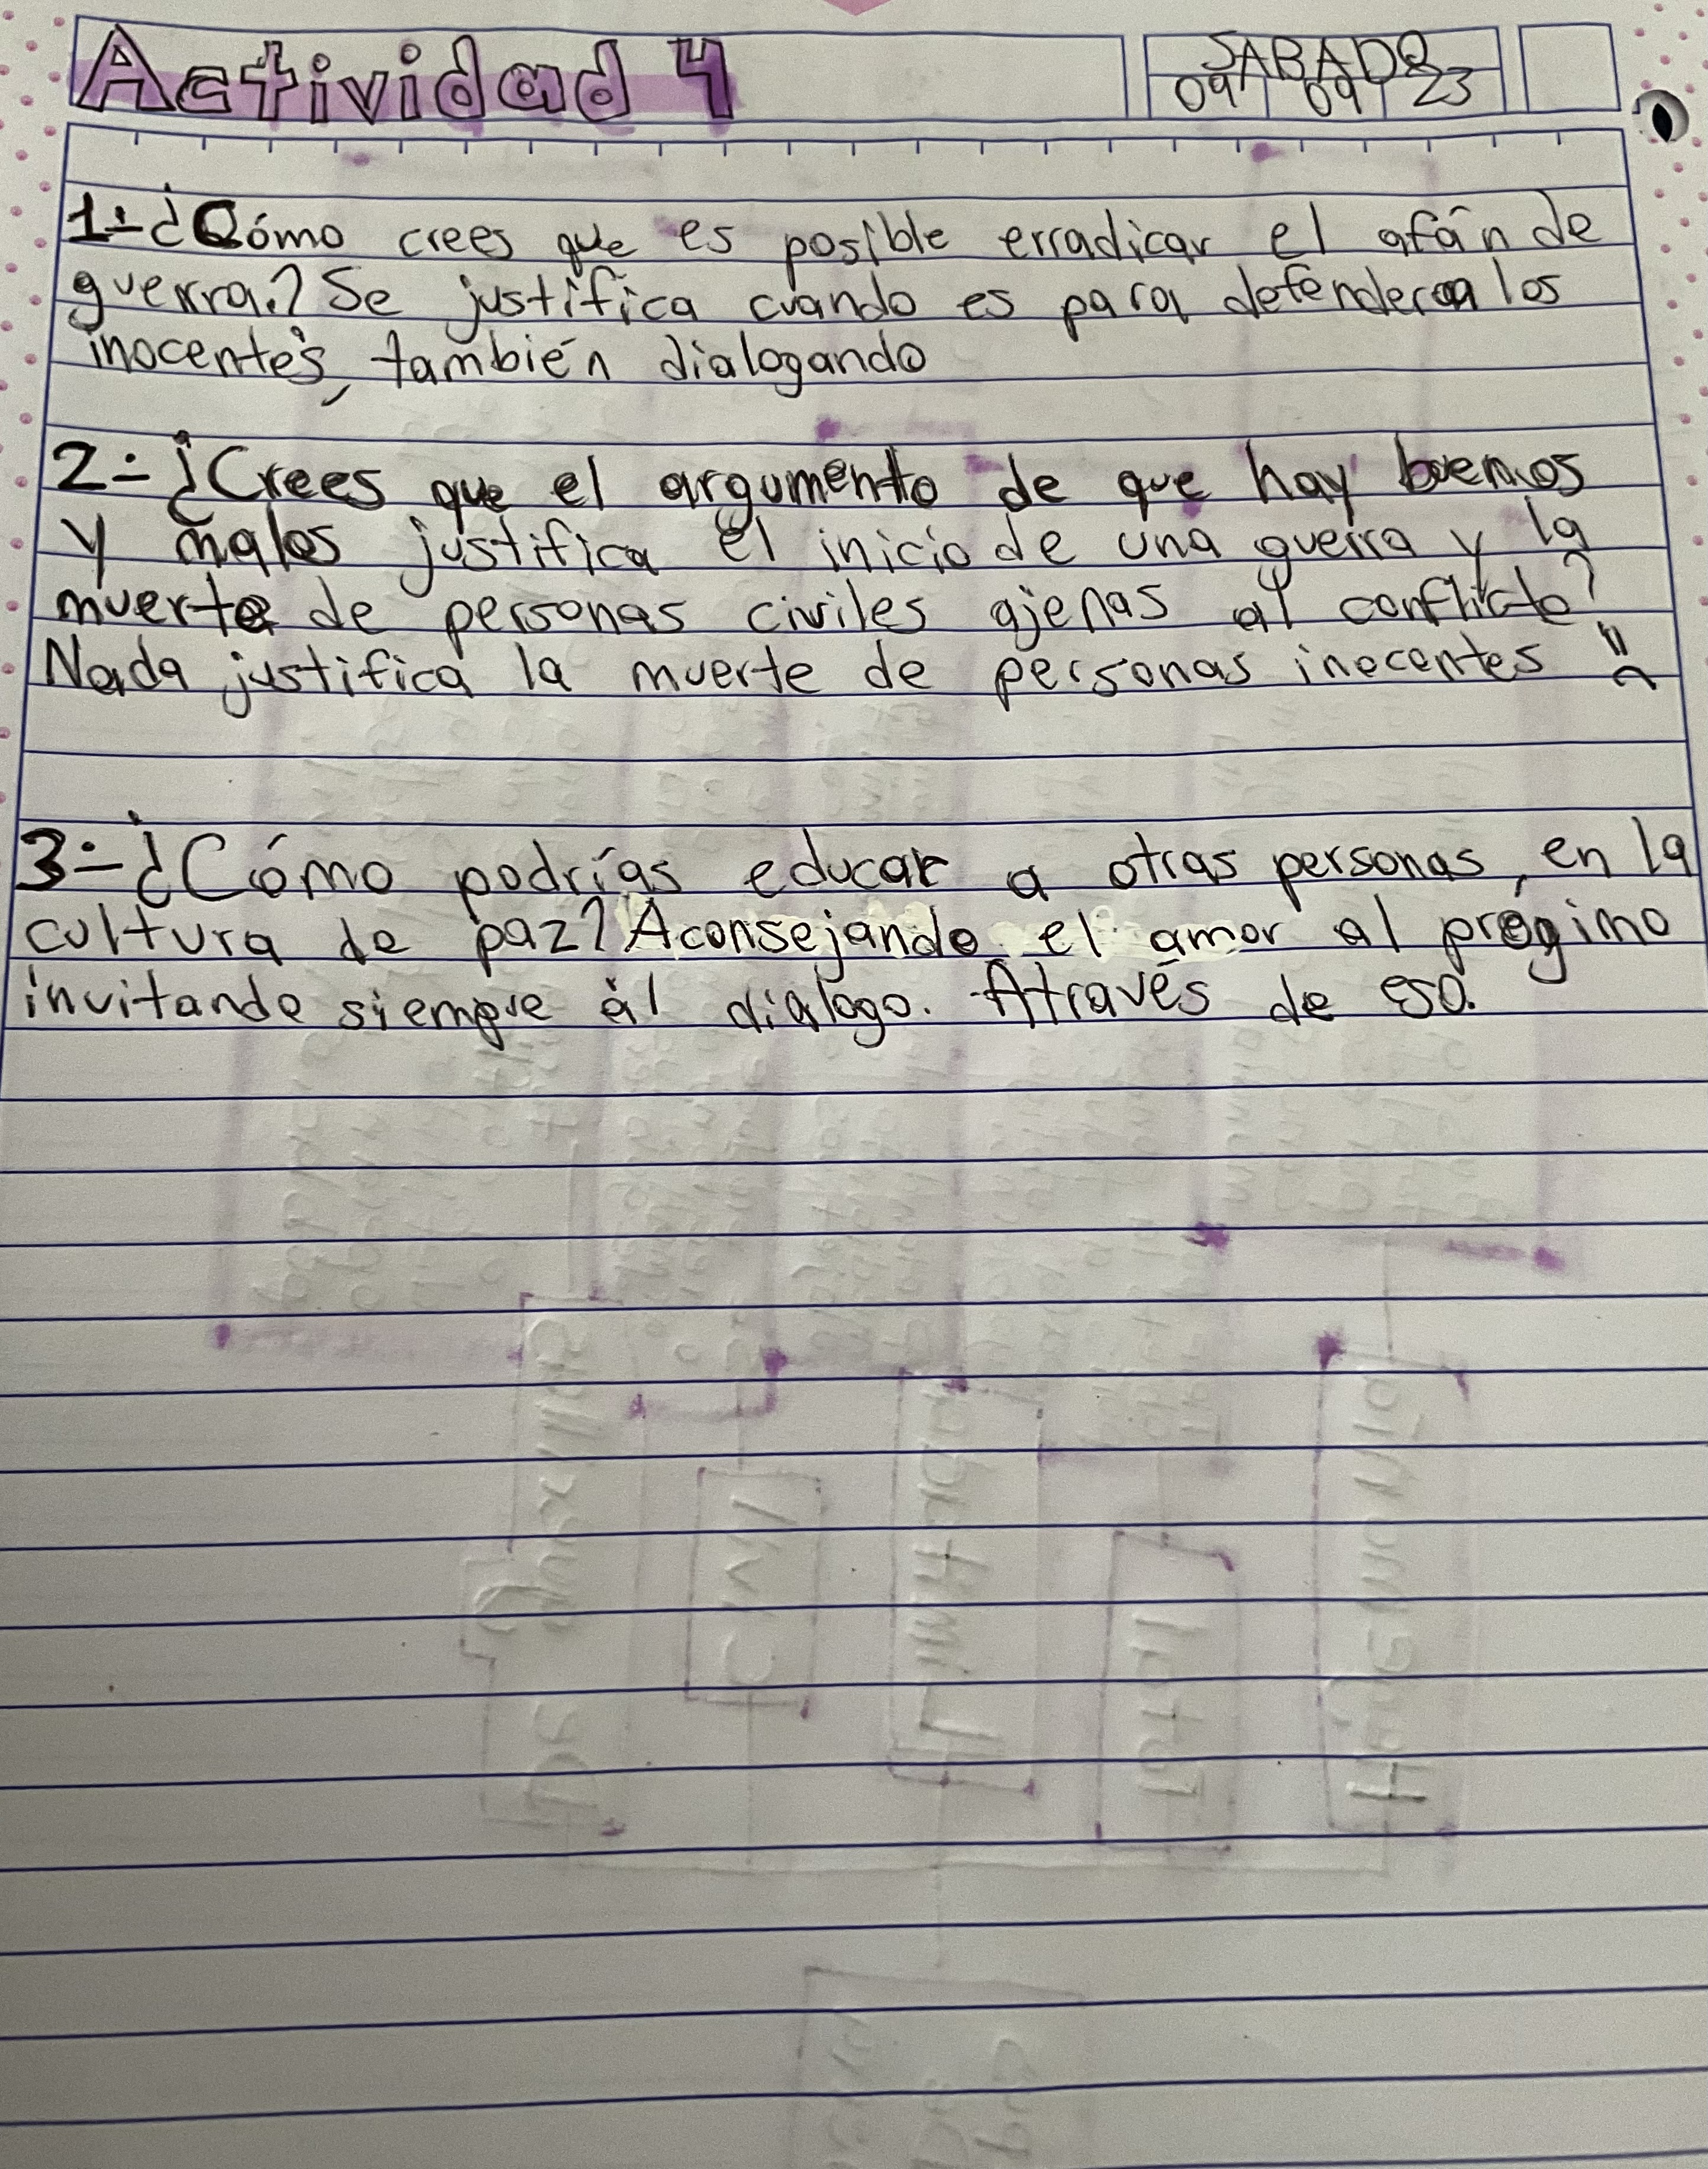 Actividad 4
SABADO
09 09 23
1- ¿Cómo crees que es posible erradicar el afán de
guerra? Se justifica cuando es para defender a los
inocentes, también dialogando
2- ¿Crees que el argumento de que hay buenos
y malos justifica el inicio de una guerra y la
muerte de personas civiles ajenas al conflicto?
Nada justifica la muerte de personas inocentes
3- ¿Cómo podrías educar a otras personas, en la
cultura de paz? Aconsejando el amor al prógimo
invitando siempre al dialogo. Através de eso.